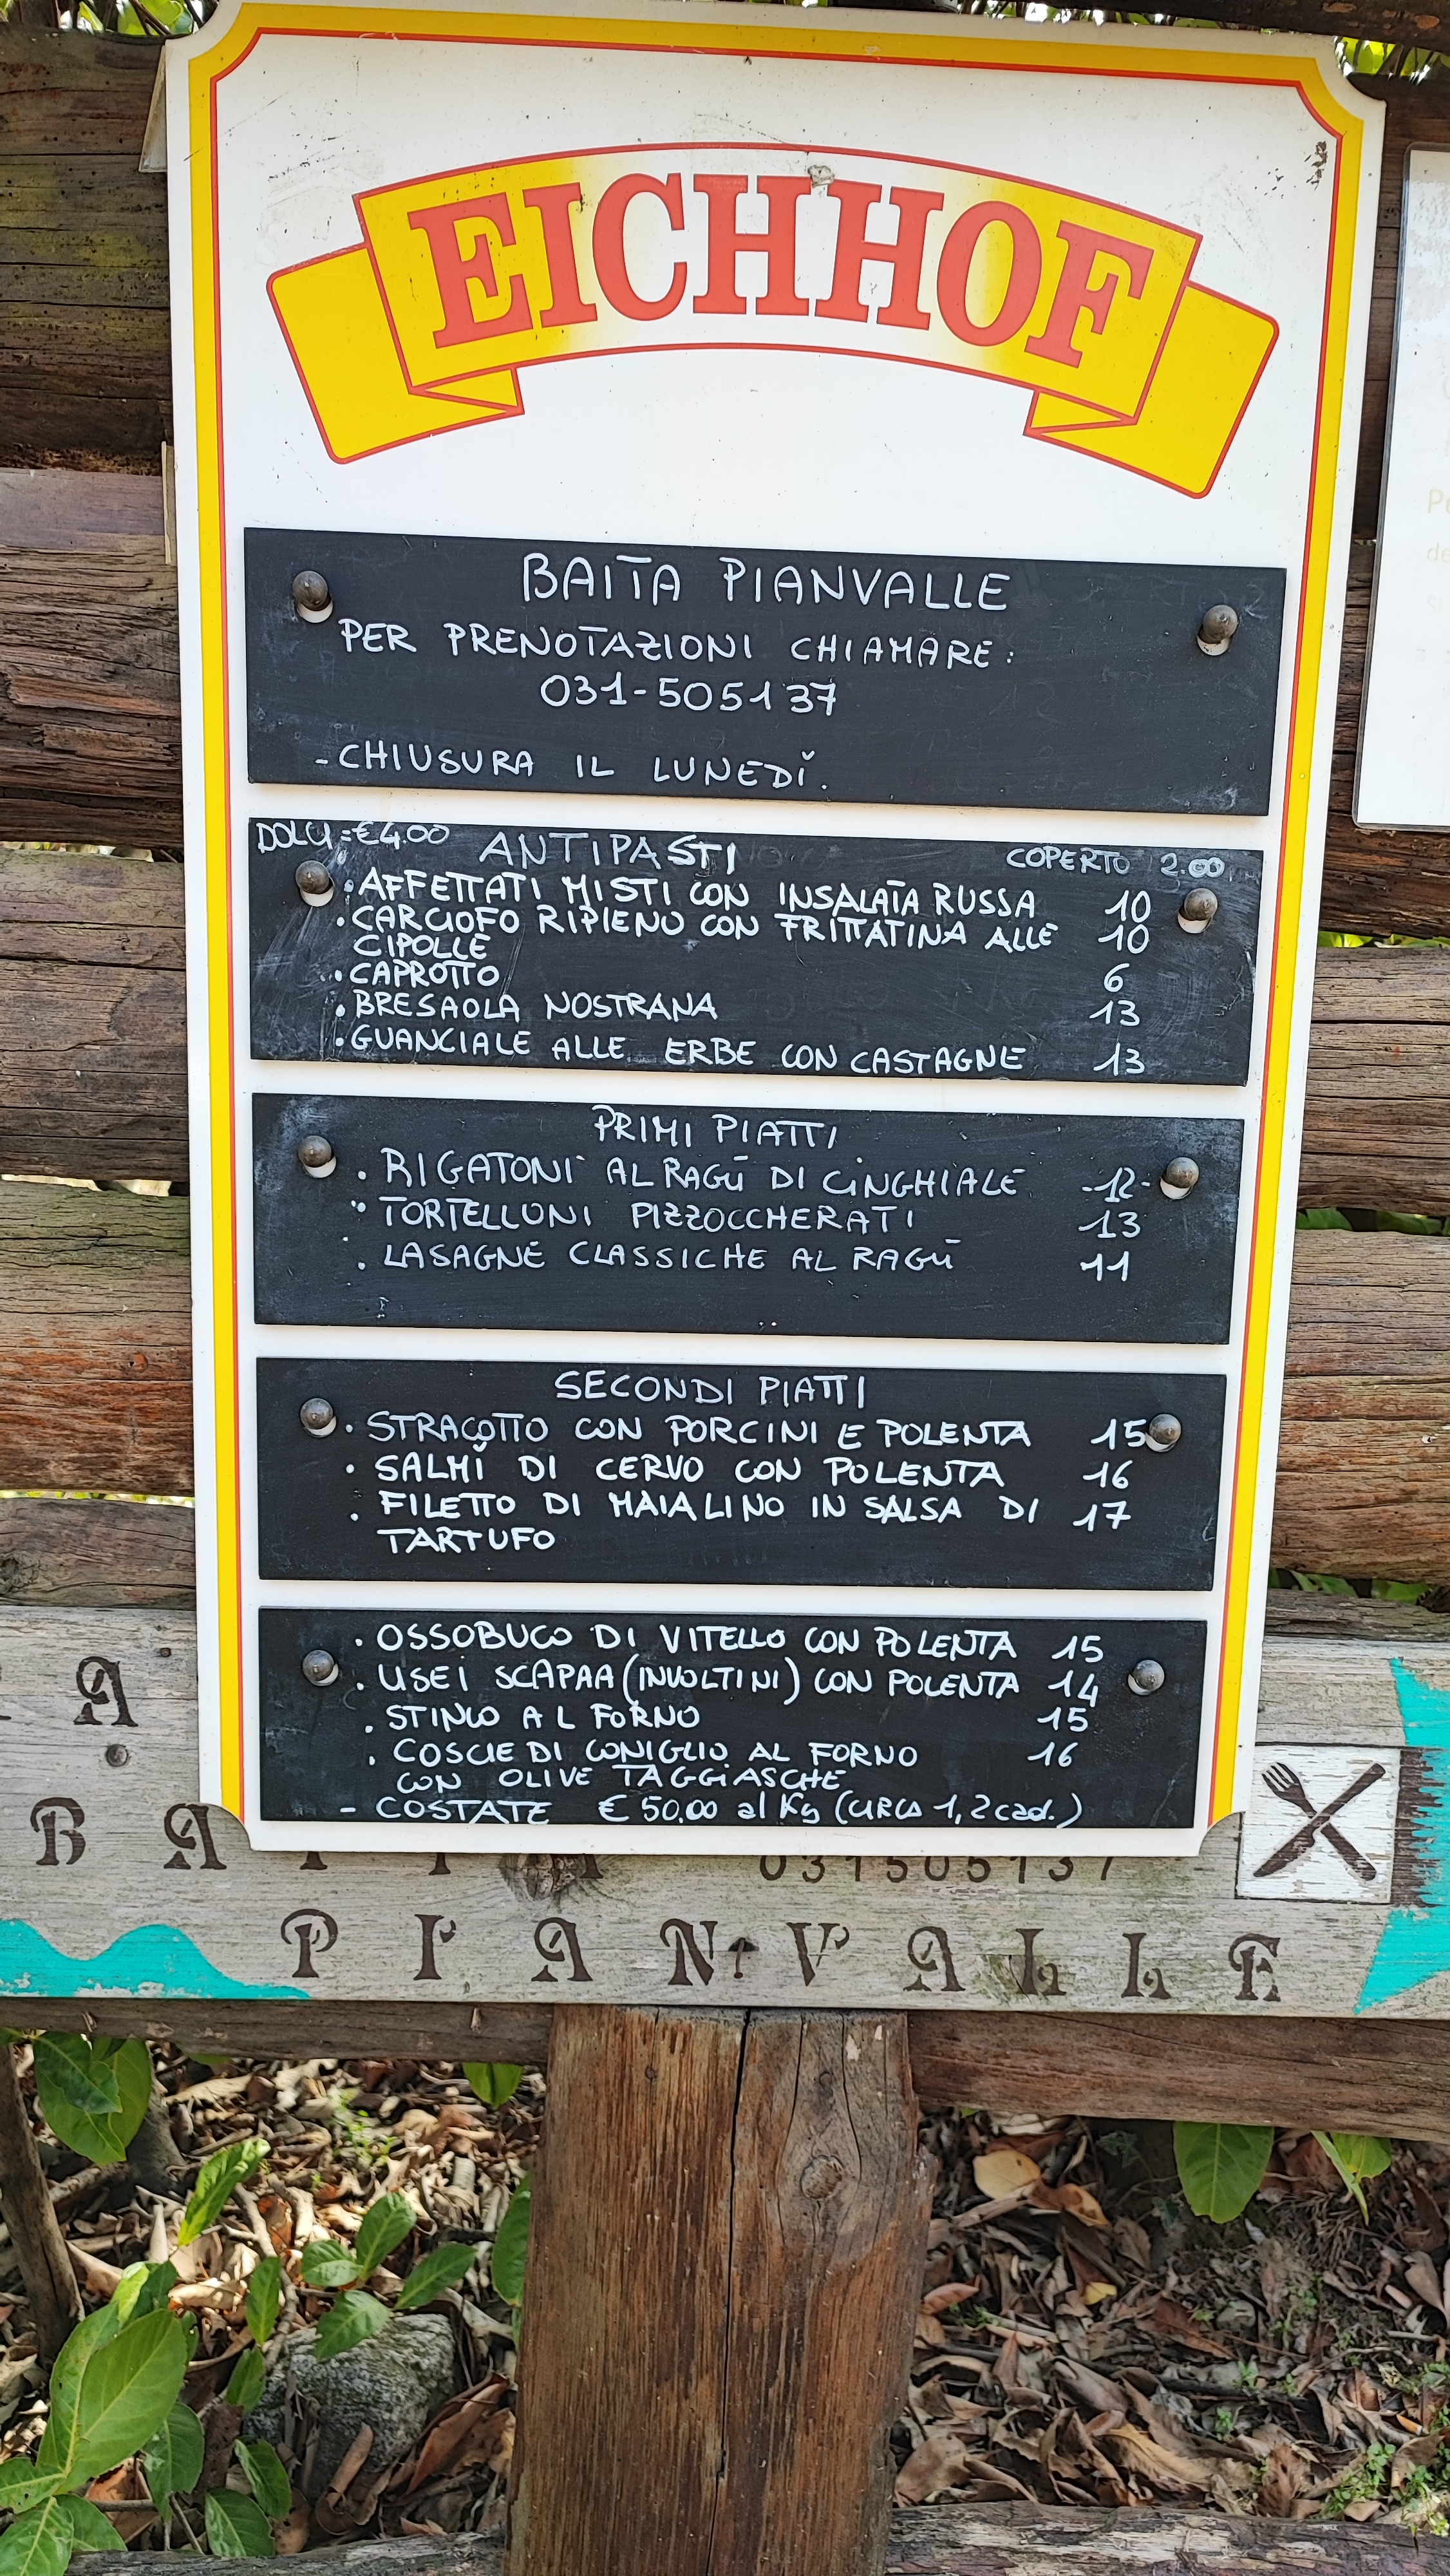 EICHHOF
BAITA PIANVALLE
PER PRENOTAZIONI CHIAMARE:
031-505137
-CHIUSURA IL LUNEDÌ.
DOLCI=€4.00 ANTIPASTI COPERTO 2.00
•AFFETTATI MISTI CON INSALATA RUSSA 10
•CARCIOFO RIPIENO CON FRITTATINA ALLE 10
CIPOLLE
•CAPROTTO 6
•BRESAOLA NOSTRANA 13
•GUANCIALE ALLE ERBE CON CASTAGNE 13
PRIMI PIATTI
• RIGATONI AL RAGÙ DI CINGHIALE -12-
• TORTELLONI PIZZOCCHERATI 13
• LASAGNE CLASSICHE AL RAGÙ 11
SECONDI PIATTI
• STRACOTTO CON PORCINI E POLENTA 15
• SALMÌ DI CERVO CON POLENTA 16
• FILETTO DI MAIALINO IN SALSA DI 17
TARTUFO
• OSSOBUCO DI VITELLO CON POLENTA 15
• USEI SCAPAA (INVOLTINI) CON POLENTA 14
• STINCO AL FORNO 15
• COSCIE DI CONIGLIO AL FORNO 16
CON OLIVE TAGGIASCHE
- COSTATE €50,00 al Kg (CIRCA 1,2 cad.)
A
BAITA 031505137
PIANVALLE